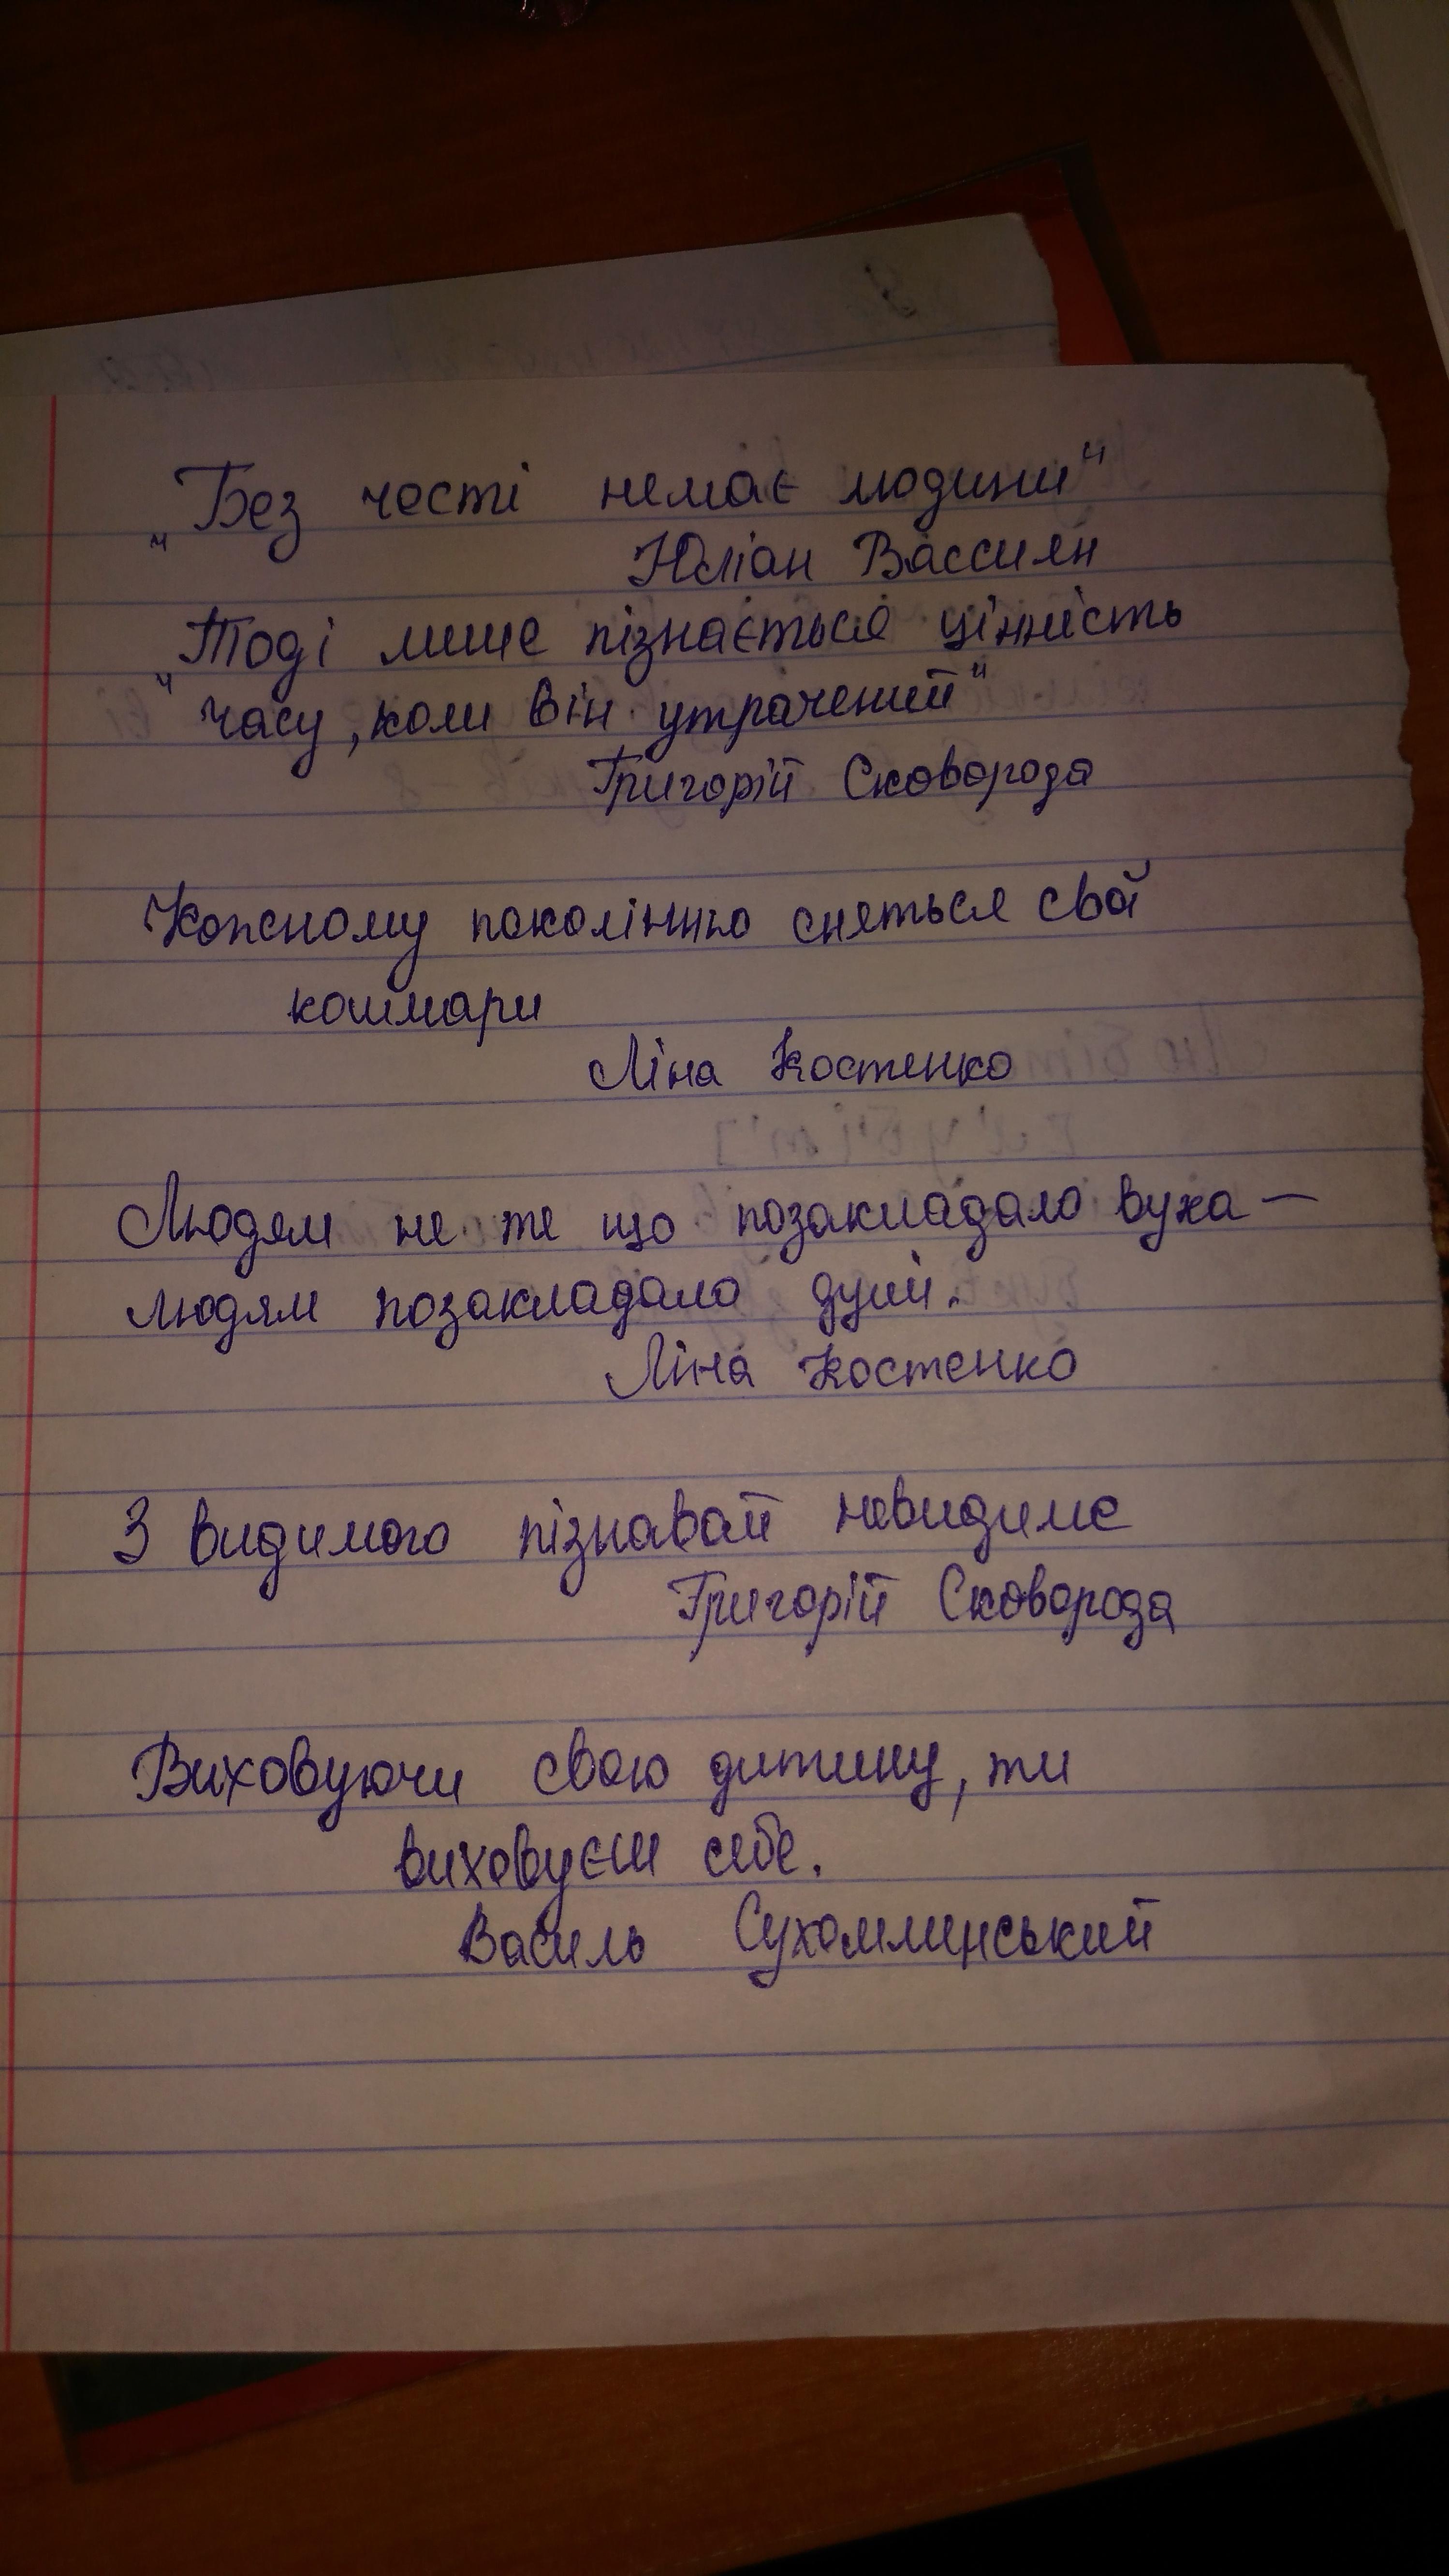 „Без честі немає людини"
Юліан Вассиян
„Тоді лише пізнається цінність
часу, коли він утрачений"
Григорій Сковорода
Кожному поколінню сняться свої
кошмари
Ліна Костенко
Людям не те що позакладало вуха –
людям позакладало душі.
Ліна Костенко
З видимого пізнавай невидиме
Григорій Сковорода
Виховуючи свою дитину, ти
виховуєш себе.
Василь Сухомлинський